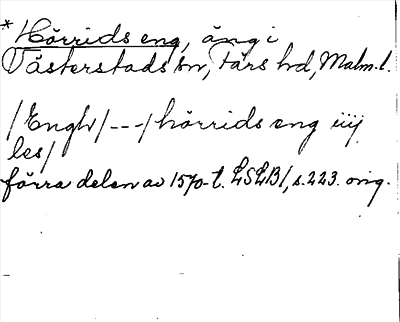 * Hörrids eng, äng i
Västerstads sn, Färs hd, Malm. l.
/Engh/ --- / hörrids eng iiij
les/
förra delen av 1570-t. LSLB1, s. 223. orig.